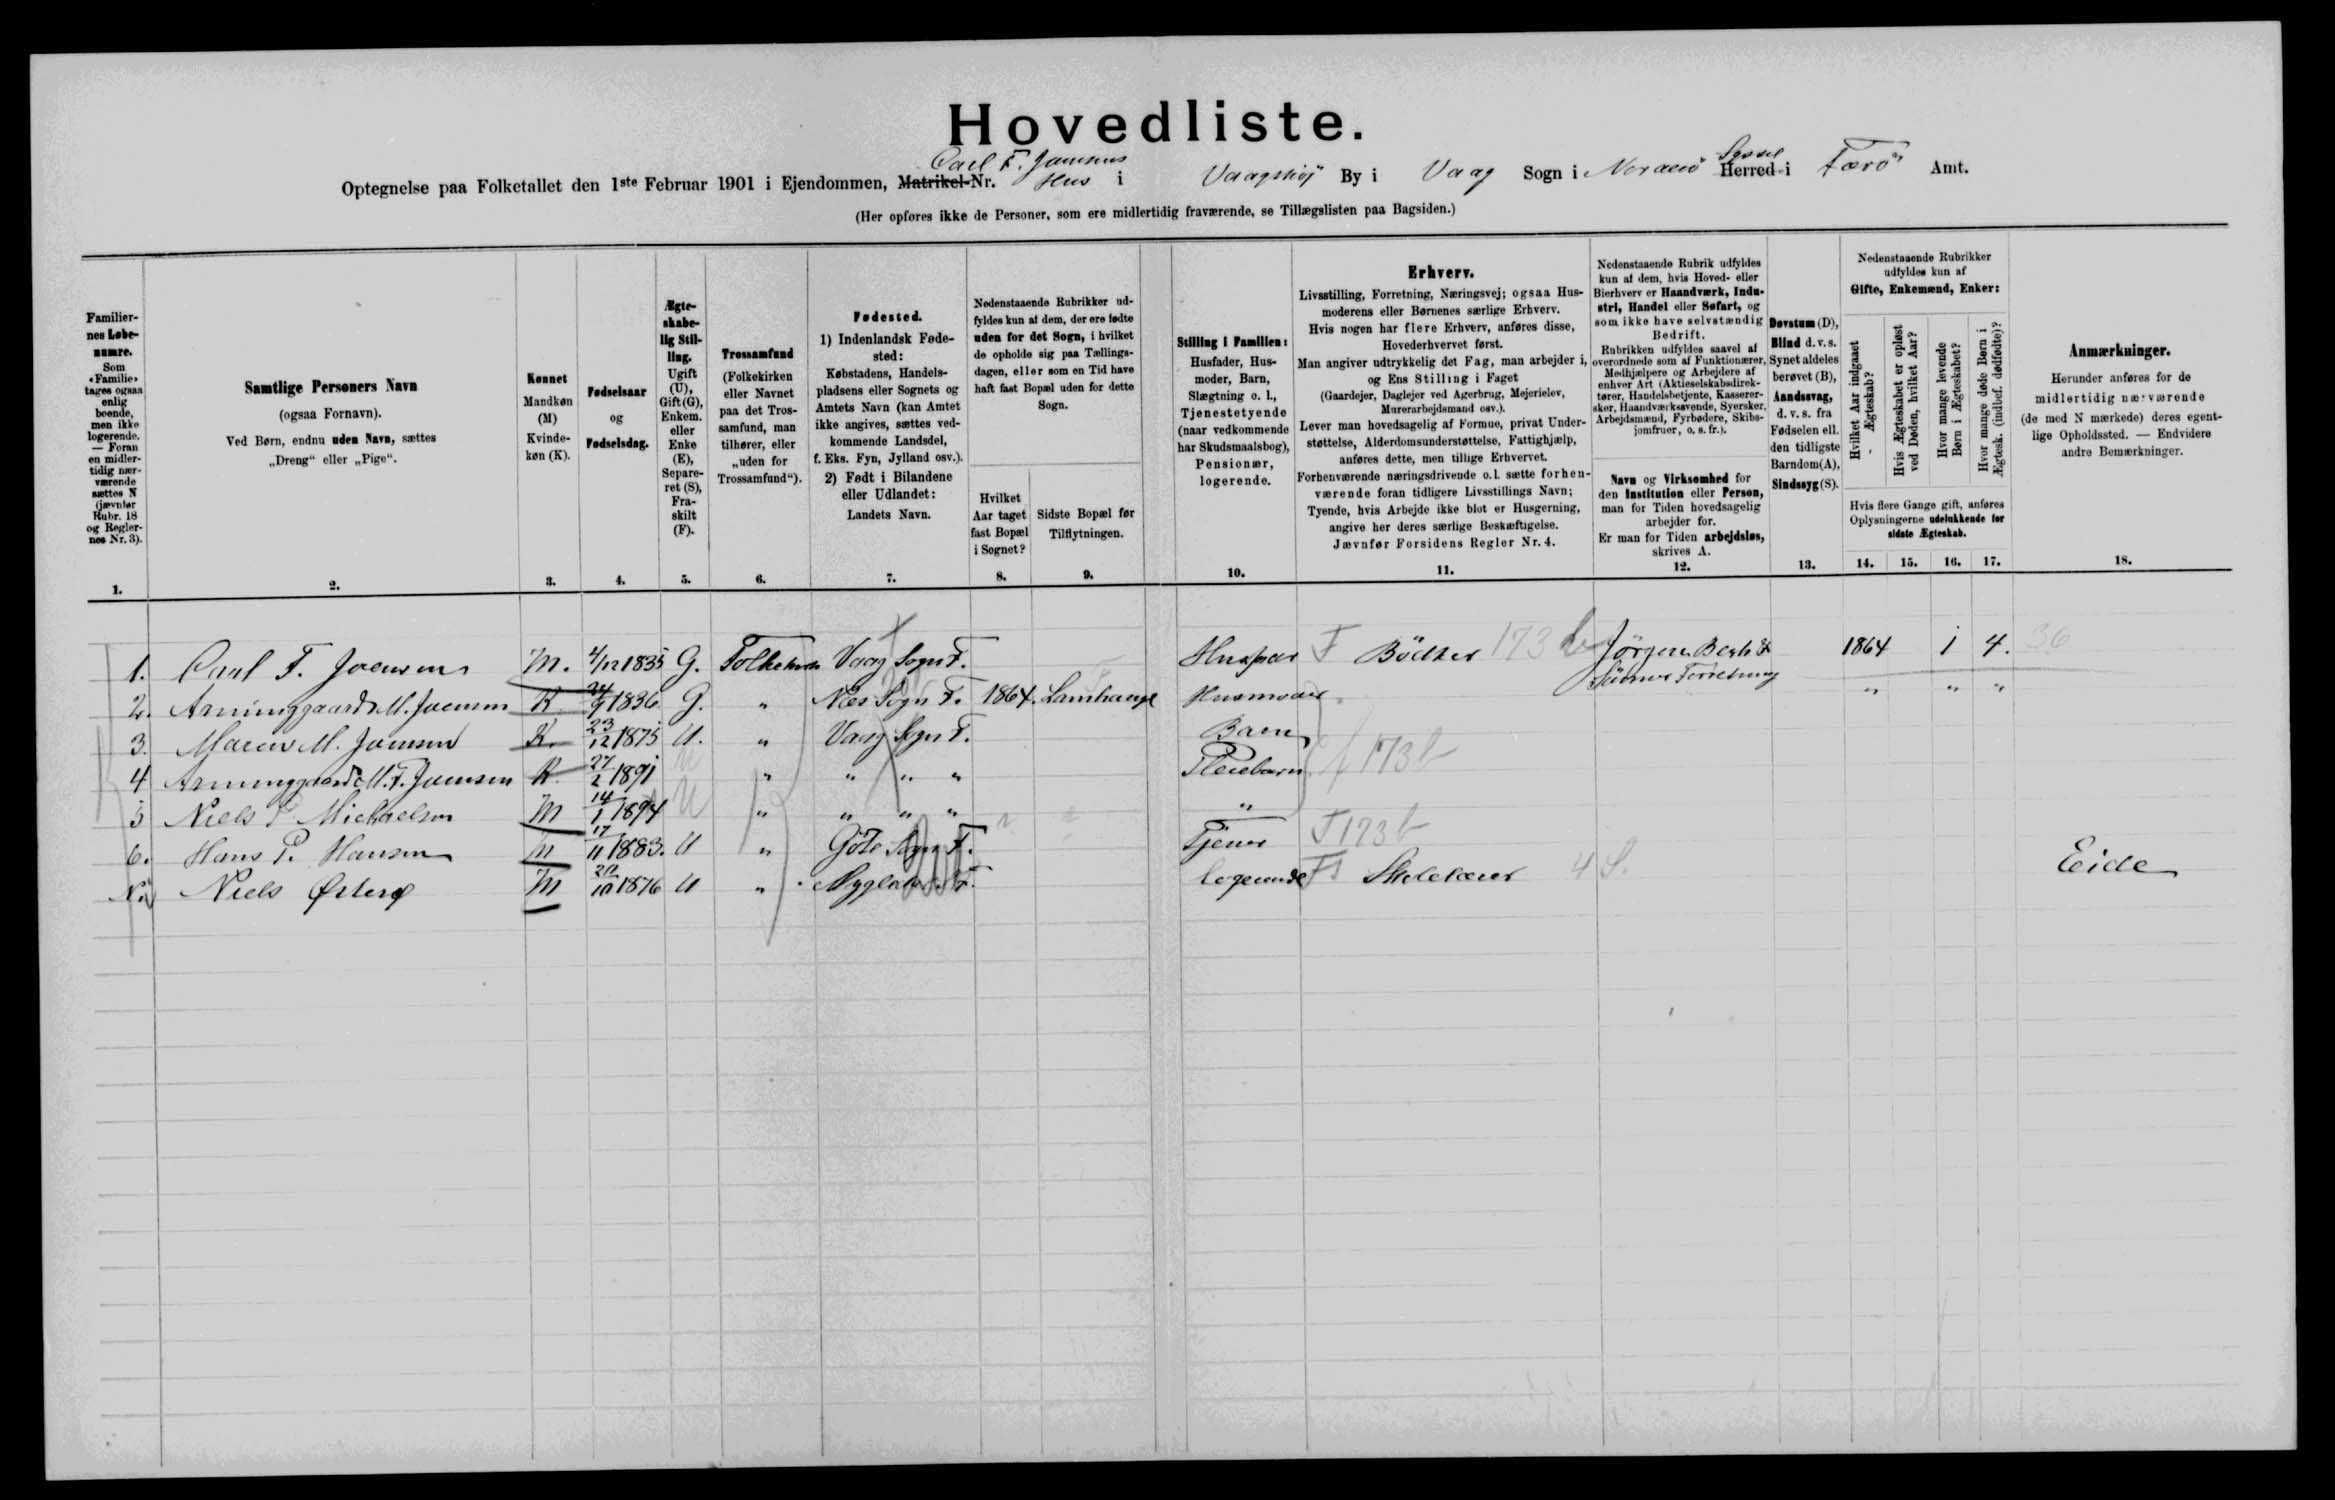 Hovedliste.
Carl F. Joensens Syssel
Optegnelse paa Folketallet den 1ste Februar 1901 i Ejendommen, Matrikel-Nr. Hus i Vaagshøj By i Vaag Sogn i Norderö Herred i Færö Amt.
(Her opføres ikke de Personer, som ere midlertidig fraværende, se Tillægslisten paa Bagsiden.)
Familiernes Løbenumre.
Som «Familie» tages ogsaa enlig boende, men ikke logerende. — Foran en midlertidig nærværende sættes N (jævnfør Rubr. 18 og Reglernes Nr. 3).
1.
Samtlige Personers Navn
(ogsaa Fornavn).
Ved Børn, endnu uden Navn, sættes
„Dreng“ eller „Pige“.
2.
Kønnet
Mandkøn (M)
Kvindekøn (K).
3.
Fødselsaar
og
Fødselsdag.
4.
Ægteskabelig Stilling.
Ugift (U), Gift (G), Enkem. eller Enke (E), Separeret (S), Fraskilt (F).
5.
Trossamfund
(Folkekirken eller Navnet paa det Trossamfund, man tilhører, eller „uden for Trossamfund“).
6.
Fødested.
1) Indenlandsk Fødested:
Købstadens, Handelspladsens eller Sognets og Amtets Navn (kan Amtet ikke angives, sættes vedkommende Landsdel, f. Eks. Fyn, Jylland osv.).
2) Født i Bilandene eller Udlandet:
Landets Navn.
7.
Nedenstaaende Rubrikker udfyldes kun af dem, der ere fødte uden for det Sogn, i hvilket de opholde sig paa Tællingsdagen, eller som en Tid have haft fast Bopæl uden for dette Sogn.
Hvilket Aar taget fast Bopæl i Sognet?
8.
Sidste Bopæl før Tilflytningen.
9.
Stilling i Familien:
Husfader, Husmoder, Barn, Slægtning o. l., Tjenestetyende (naar vedkommende har Skudsmaalsbog), Pensionær, logerende.
10.
Erhverv.
Livsstilling, Forretning, Næringsvej; ogsaa Husmoderens eller Børnenes særlige Erhverv.
Hvis nogen har flere Erhverv, anføres disse, Hovederhvervet først.
Man angiver udtrykkelig det Fag, man arbejder i, og Ens Stilling i Faget
(Gaardejer, Daglejer ved Agerbrug, Mejerielev, Murerarbejdsmand osv.).
Lever man hovedsagelig af Formue, privat Understøttelse, Alderdomsunderstøttelse, Fattighjælp, anføres dette, men tillige Erhvervet.
Forhenværende næringsdrivende o. l. sætte forhenværende foran tidligere Livsstillings Navn;
Tyende, hvis Arbejde ikke blot er Husgerning, angive her deres særlige Beskæftigelse.
Jævnfør Forsidens Regler Nr. 4.
11.
Nedenstaaende Rubrik udfyldes kun af dem, hvis Hoved- eller Bierhverv er Haandværk, Industri, Handel eller Søfart, og som ikke have selvstændig Bedrift.
Rubrikken udfyldes saavel af overordnede som af Funktionærer, Medhjælpere og Arbejdere af enhver Art (Aktieselskabsdirektører, Handelsbetjente, Kasserersker, Haandværkssvende, Syersker, Arbejdsmænd, Fyrbødere, Skibsjomfruer, o. s. fr.).
Navn og Virksomhed for den Institution eller Person, man for Tiden hovedsagelig arbejder for.
Er man for Tiden arbejdsløs, skrives A.
12.
Døvstum (D), Blind d. v. s. Synet aldeles berøvet (B), Aandssvag, d. v. s. fra Fødselen ell. den tidligste Barndom (A), Sindssyg (S).
13.
Nedenstaaende Rubrikker udfyldes kun af
Gifte, Enkemænd, Enker:
Hvilket Aar indgaaet Ægteskab?
Hvis Ægteskabet er opløst ved Døden, hvilket Aar?
Hvor mange levende Børn i Ægteskabet?
Hvor mange døde Børn i Ægtesk. (indbef. dødfødte)?
Hvis flere Gange gift, anføres Oplysningerne udelukkende for sidste Ægteskab.
14. 15. 16. 17.
Anmærkninger.
Herunder anføres for de midlertidig nærværende (de med N mærkede) deres egentlige Opholdssted. — Endvidere andre Bemærkninger.
18.
1. Carl F. Joensen M. 4/12 1835 G. Folkekirken Vaag Sogn F. Husfar F Bödker 173 b Jörgen Bech & Sönner Forretning 1864 1 4. 36
2. Arminggaard M. Joensen K 24/9 1836 G. " Næs Sogn F. 1864. Lamhauge Husmoder " " "
3. Maren M. Joensen K. 23/12 1875 U. " Vaag Sogn F. Barn
4 Arminggaard M. F. Joensen K. 27/2 1891 U " " " " Pleiebarn f 173 b
5 Niels P Michaelsen M 14/1 1894 U " " " " "
6. Hans P. Hansen M 17/11 1883. U " Göte Sogn F. Tjener T 173 b
N. Niels Østerø M 20/10 1876 U " F. logerende F Skolelærer 4 S. Eide